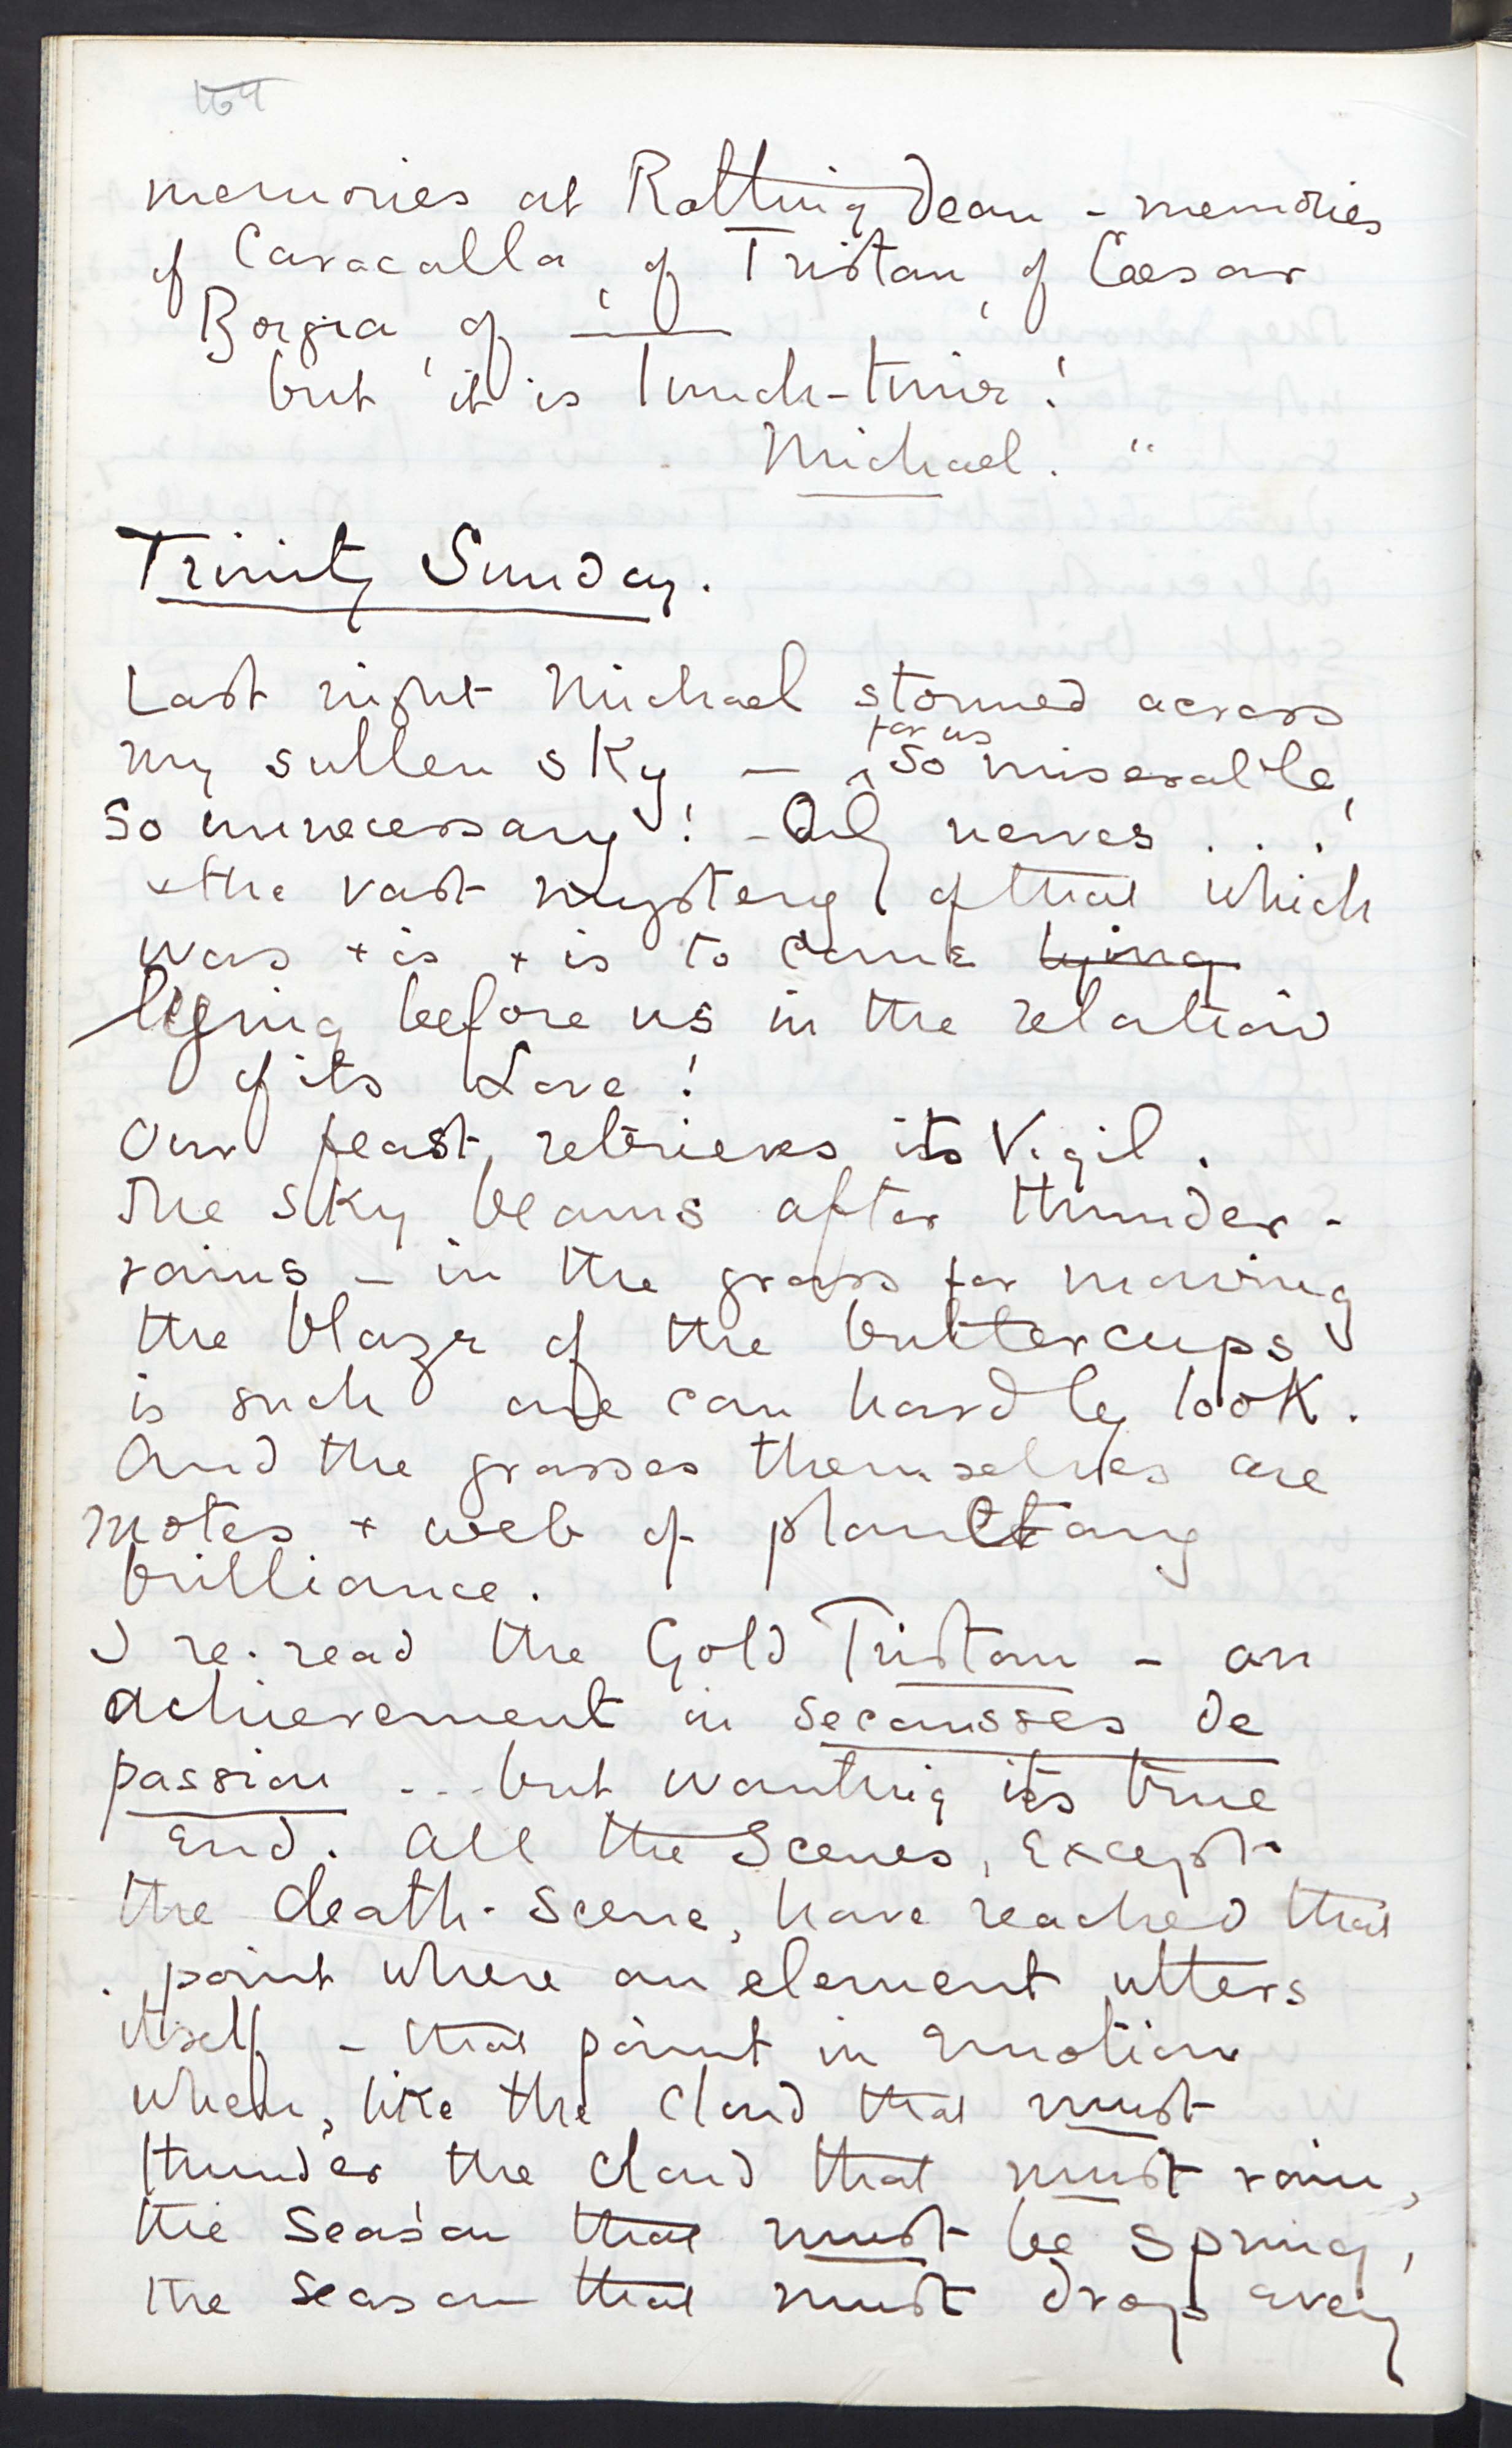 164
memories at Rottingdean - memories
of Caracalla, of Tristan, of Caesar
Borgia, of ———
but it is lunch-time!
Michael. "
Trinity Sunday.
Last night Michael stormed across
for us
my sullen sky — ^ so miserable,
so unnecessary! - Only nerves . . . !
+ the vast mystery of that which
was + is + is to come lying
lying before us in the relation
of its Love!
Our feast, retrieves its Vigil.
The sky beams after thunder-
rains - in the grass for mowing
the blaze of the buttercups
is such one can hardly look.
And the grasses themselves are
motes + web of planetary
brilliance.
I re-read the Gold Tristan - an
achievement in secousses de
passion ... but wanting its true
end. All the Scenes, except
the death-scene, have reached that
point where an element utters
itself - that point in emotion
when, like the cloud that must
thunder the cloud that must rain,
the season that must be spring,
the season that must drop every